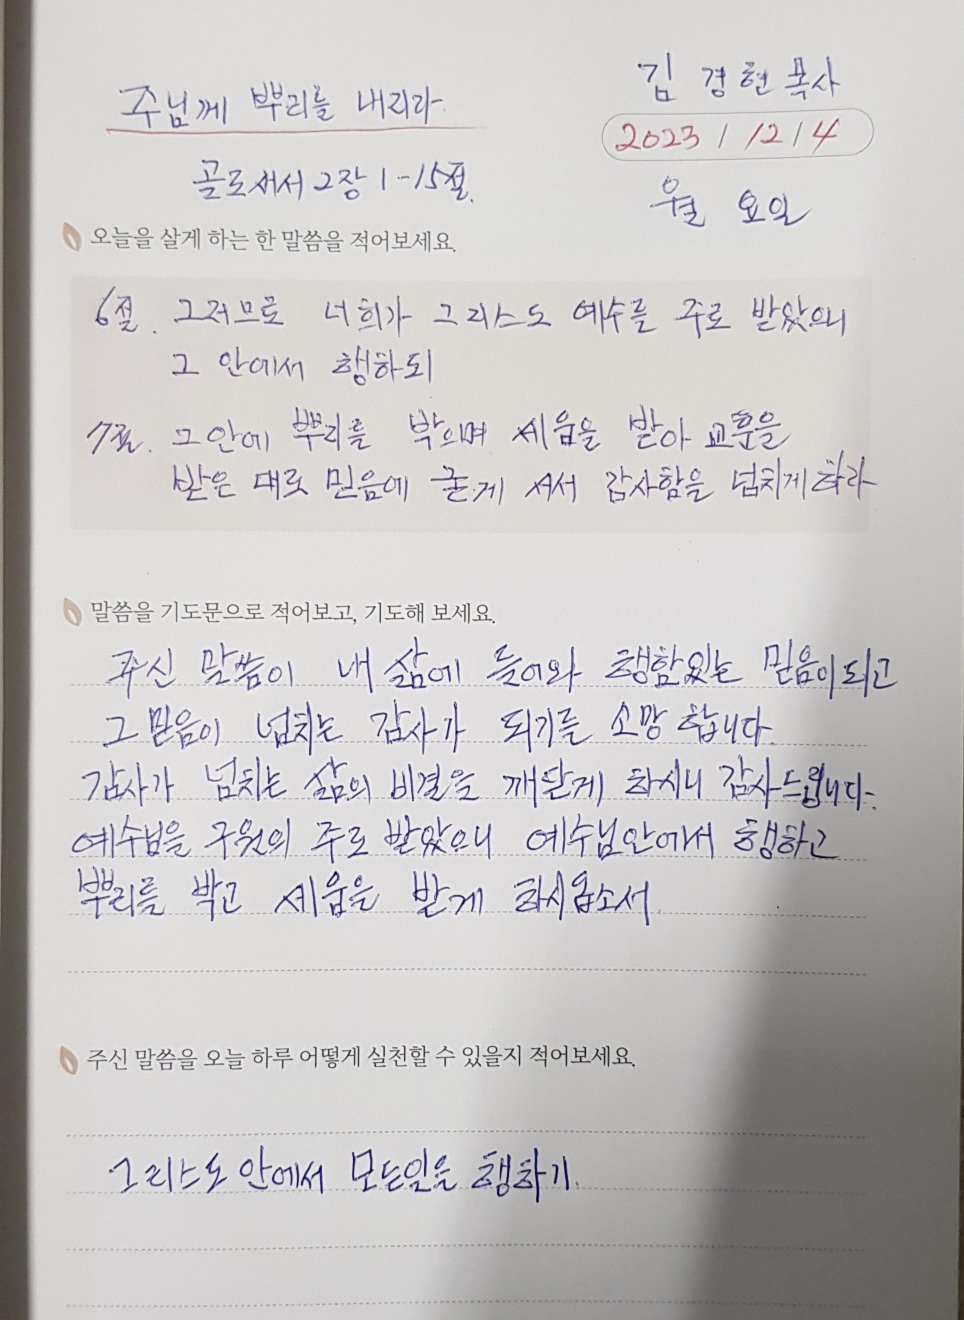 주님께 뿌리를 내리라
김 경현 목사
2023 / 12 / 4
골로새서 2장 1-15절.
월 요일
오늘을 살게 하는 한 말씀을 적어보세요.
6절. 그러므로 너희가 그리스도 예수를 주로 받았으니
그 안에서 행하되
7절. 그 안에 뿌리를 박으며 세움을 받아 교훈을
받은 대로 믿음에 굳게 서서 감사함을 넘치게 하라
말씀을 기도문으로 적어보고, 기도해 보세요.
주신 말씀이 내 삶에 들어와 행함있는 믿음이 되고
그 믿음이 넘치는 감사가 되기를 소망 합니다.
감사가 넘치는 삶의 비결을 깨닫게 하시니 감사드립니다.
예수님을 구원의 주로 받았으니 예수님안에서 행하고
뿌리를 박고 세움을 받게 하시옵소서.
주신 말씀을 오늘 하루 어떻게 실천할 수 있을지 적어보세요.
그리스도 안에서 모든일을 행하기.